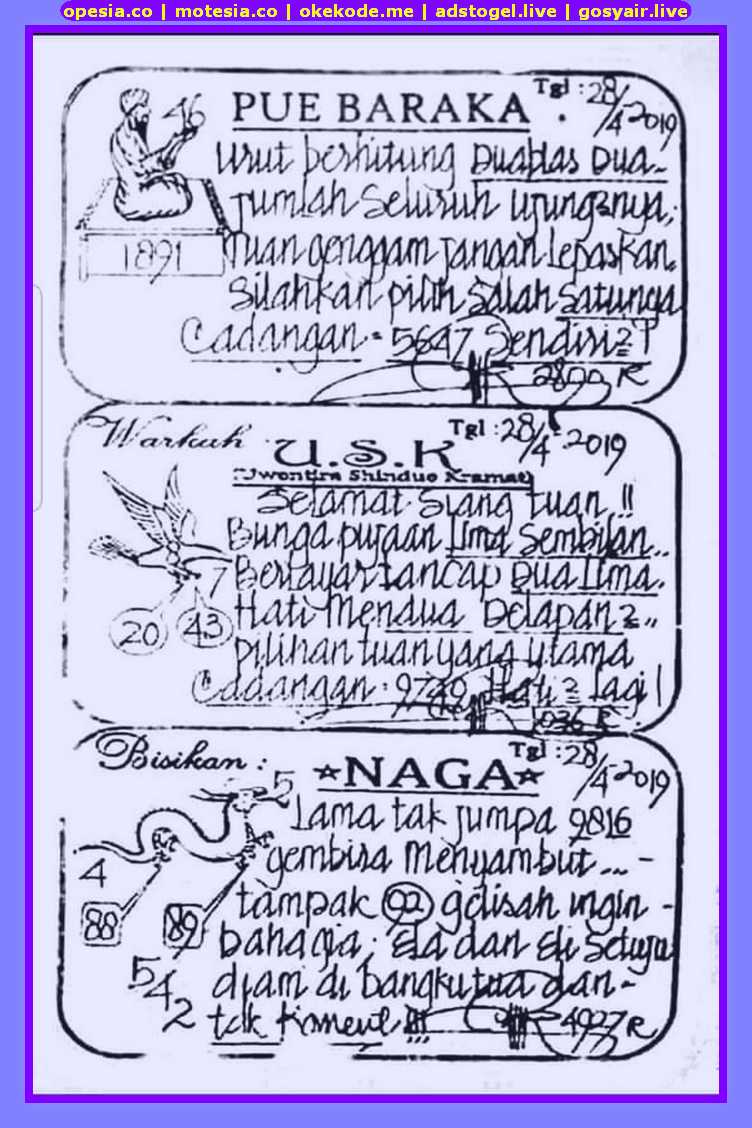 opesia.co | motesia.co | okekode.me | adstogel.live | gosyair.live
Tgl : 28/4 2019
46
PUE BARAKA
Urut berhitung Duablas Dua-
Jumlah Seluruh ujung2nya;
1891
Tuan genggam jangan lepaskan.
Silahkan pilih Salah Satunya
Cadangan = 5647 Sendiri2
2800 R
Warkah
Tgl : 28/4-2019
U.S.K
Selamat Siang tuan !!
Bunga pujaan Lima Sembilan...
7 Berlayar tancap Dua Lima.
20 43 Hati Mendua Delapan2..
pilihan tuan yang utama
Cadangan : 9749 Hati2 lagi!
1036 R
Bisikan :
Tgl : 28/4-2019
5 ★NAGA★
Lama tak jumpa 9816
4 gembira menyambut... -
88 89 tampak 92 gelisah ingin -
bahagia; Ela dan Eli Setuju
5
4
2
diam di bangku tua dan -
tak !!!
4927 R